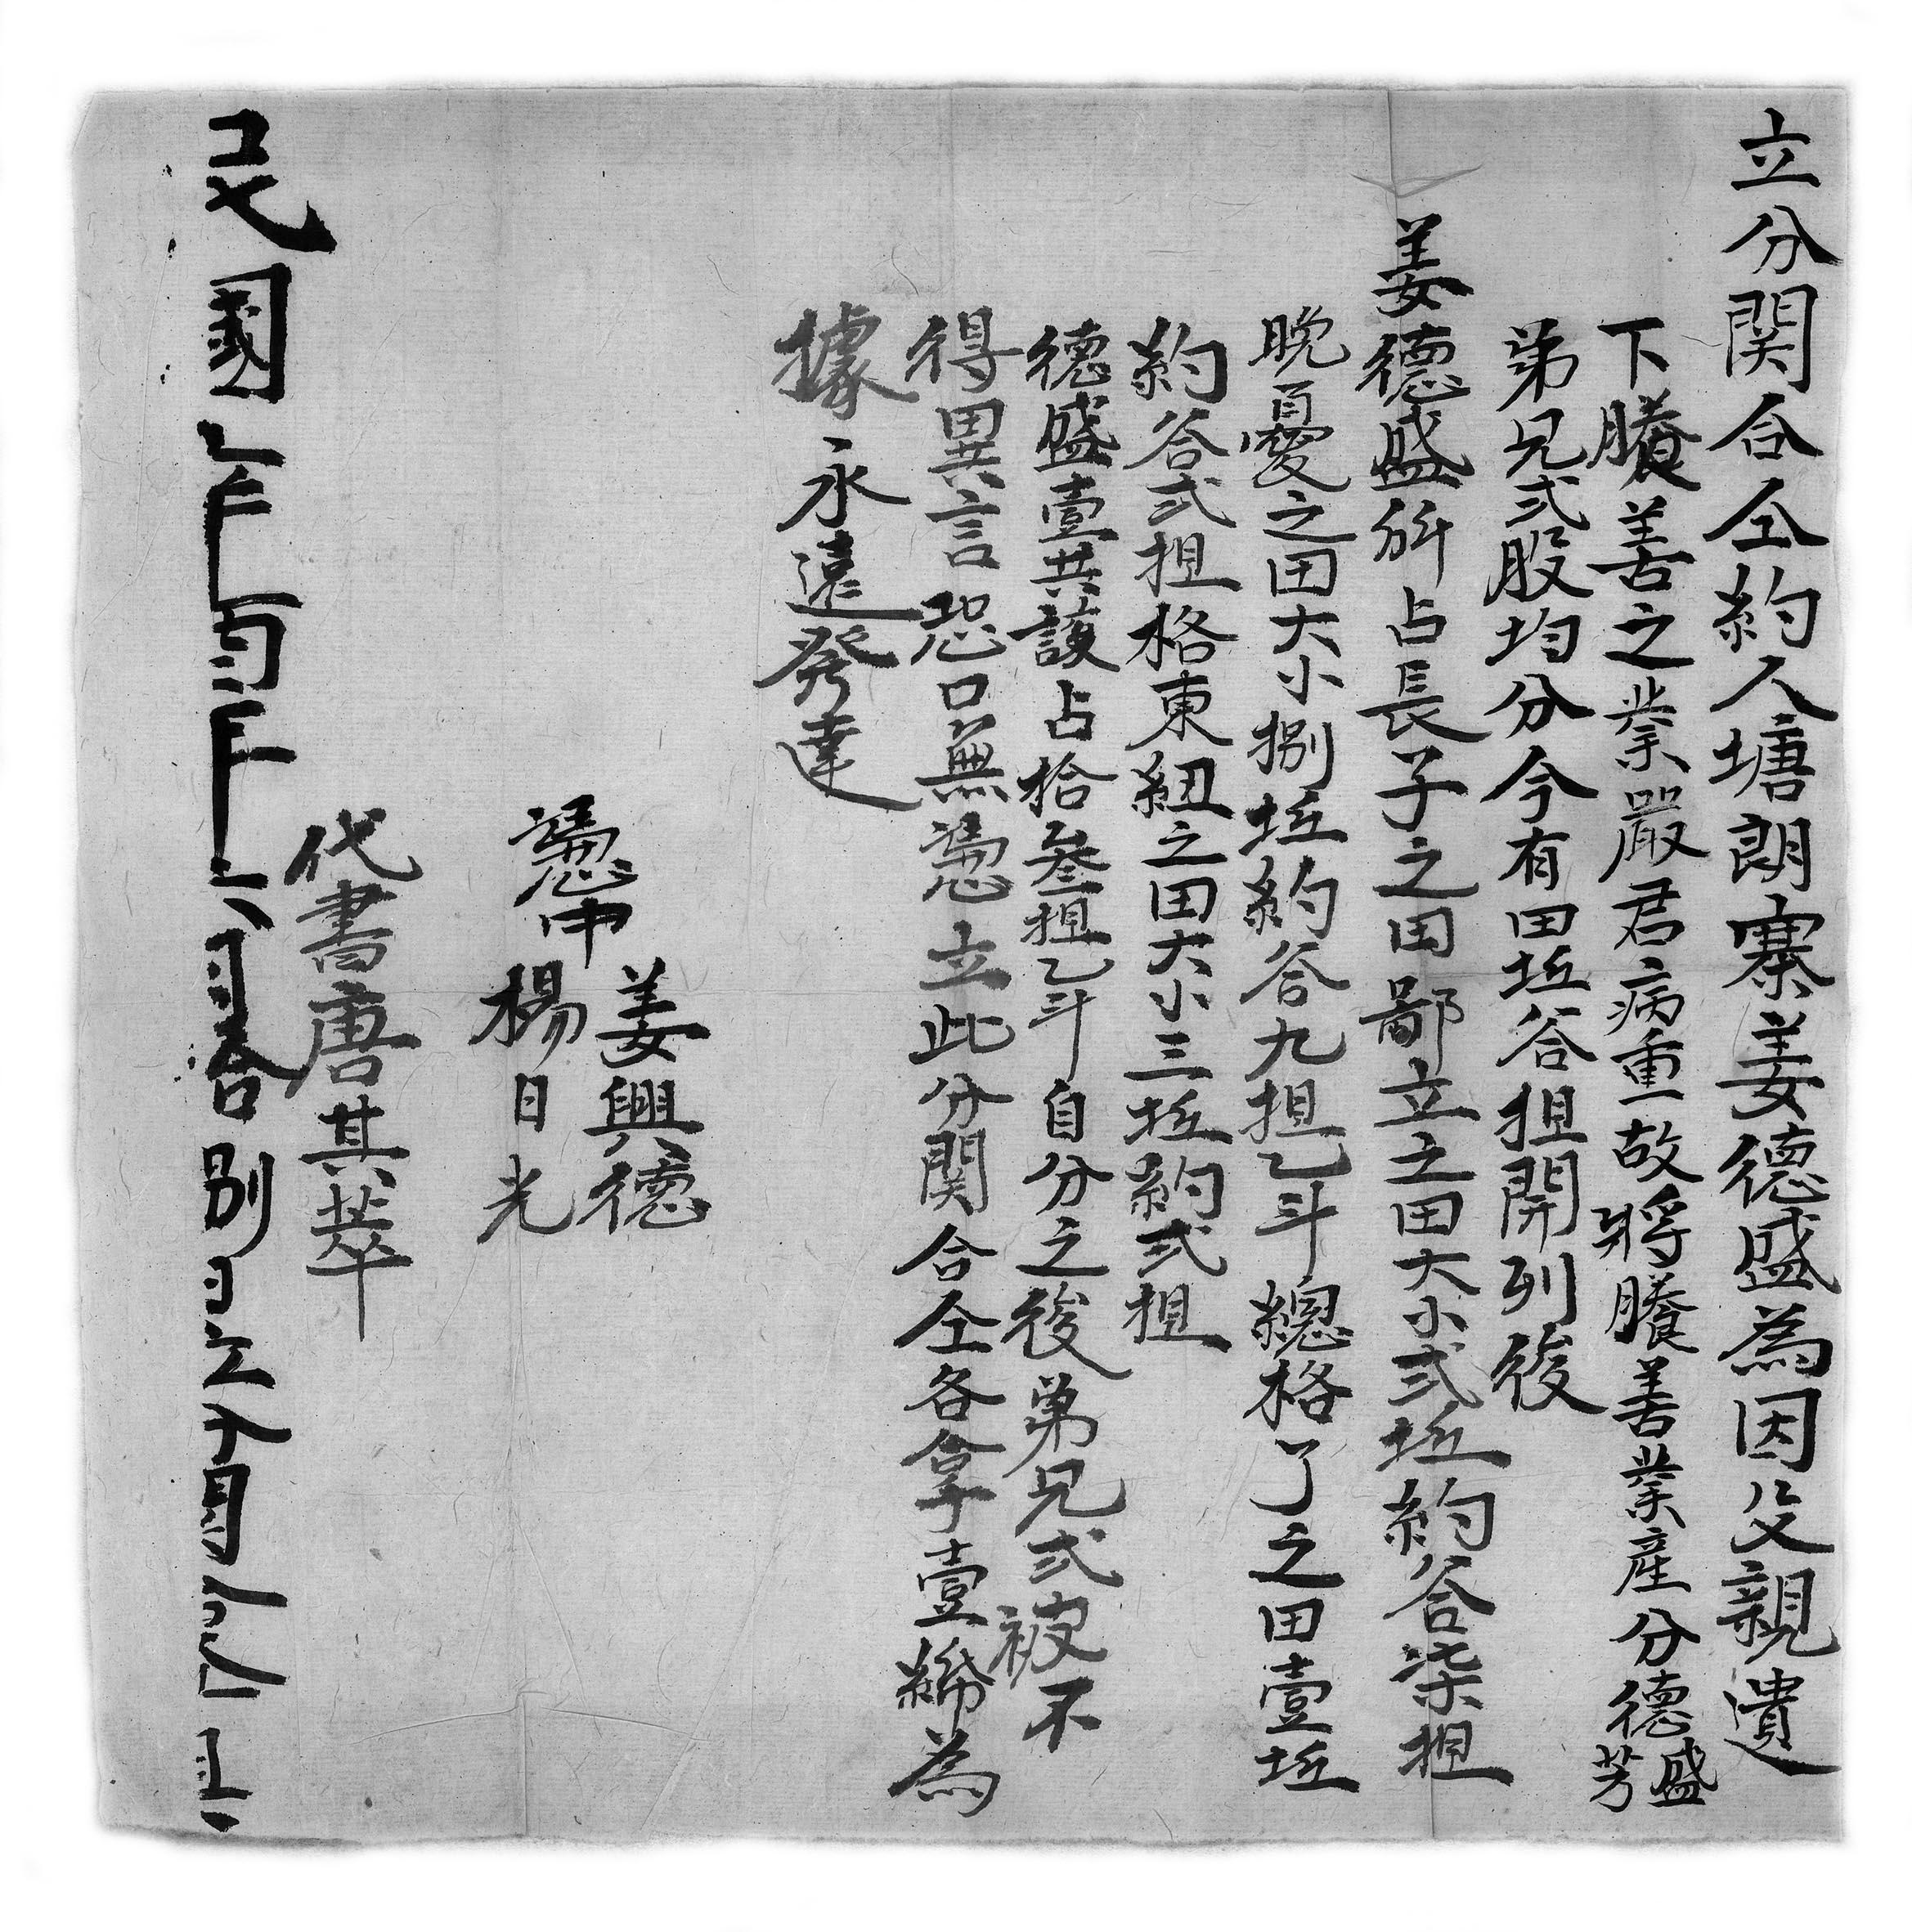 立分関合仝約人塘朗寨姜德盛為因父親遺
下膳善之業嚴君病重故將膳善業產分德盛芳
弟兄弍股均分今有田坵谷担開列後
姜德盛所占長子之田鄙立之田大小弍坵約谷柒担
晚憂之田大小捌坵約谷九担乙斗總格了之田壹坵
約谷弍担格東紐之田大小三坵約弍担
德盛壹共該占拾叁担乙斗自分之後弟兄弍彼不
得異言恐口無憑立此分関合仝各拿壹紙為
據永遠發達
憑中姜興德
楊日光
代書唐其萃
民國